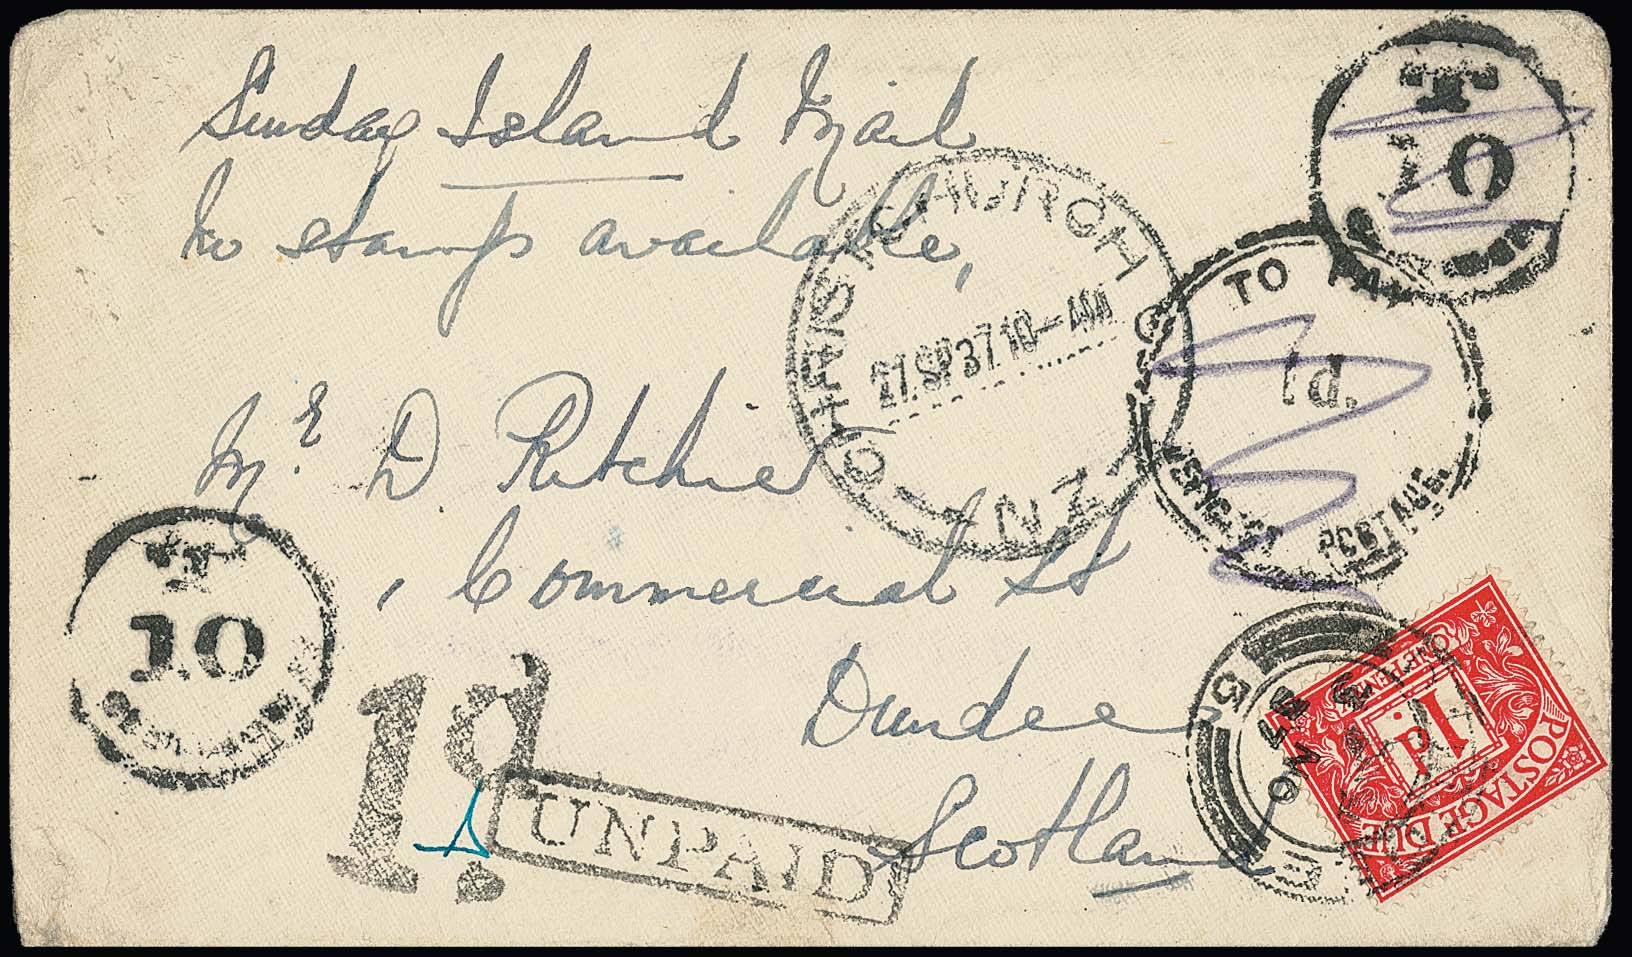 Sunday Island Mail
No stamps available,
T
10
TO PAY
1d.
POSTAGE.
CHRISTCHURCH
27.SP37.10-AM
N.Z.
Mr. D Ritchie
Commercial St
Dundee
Scotland
T
10
1d
UNPAID
5
NO
37
POSTAGE DUE
1d
ONE PENNY